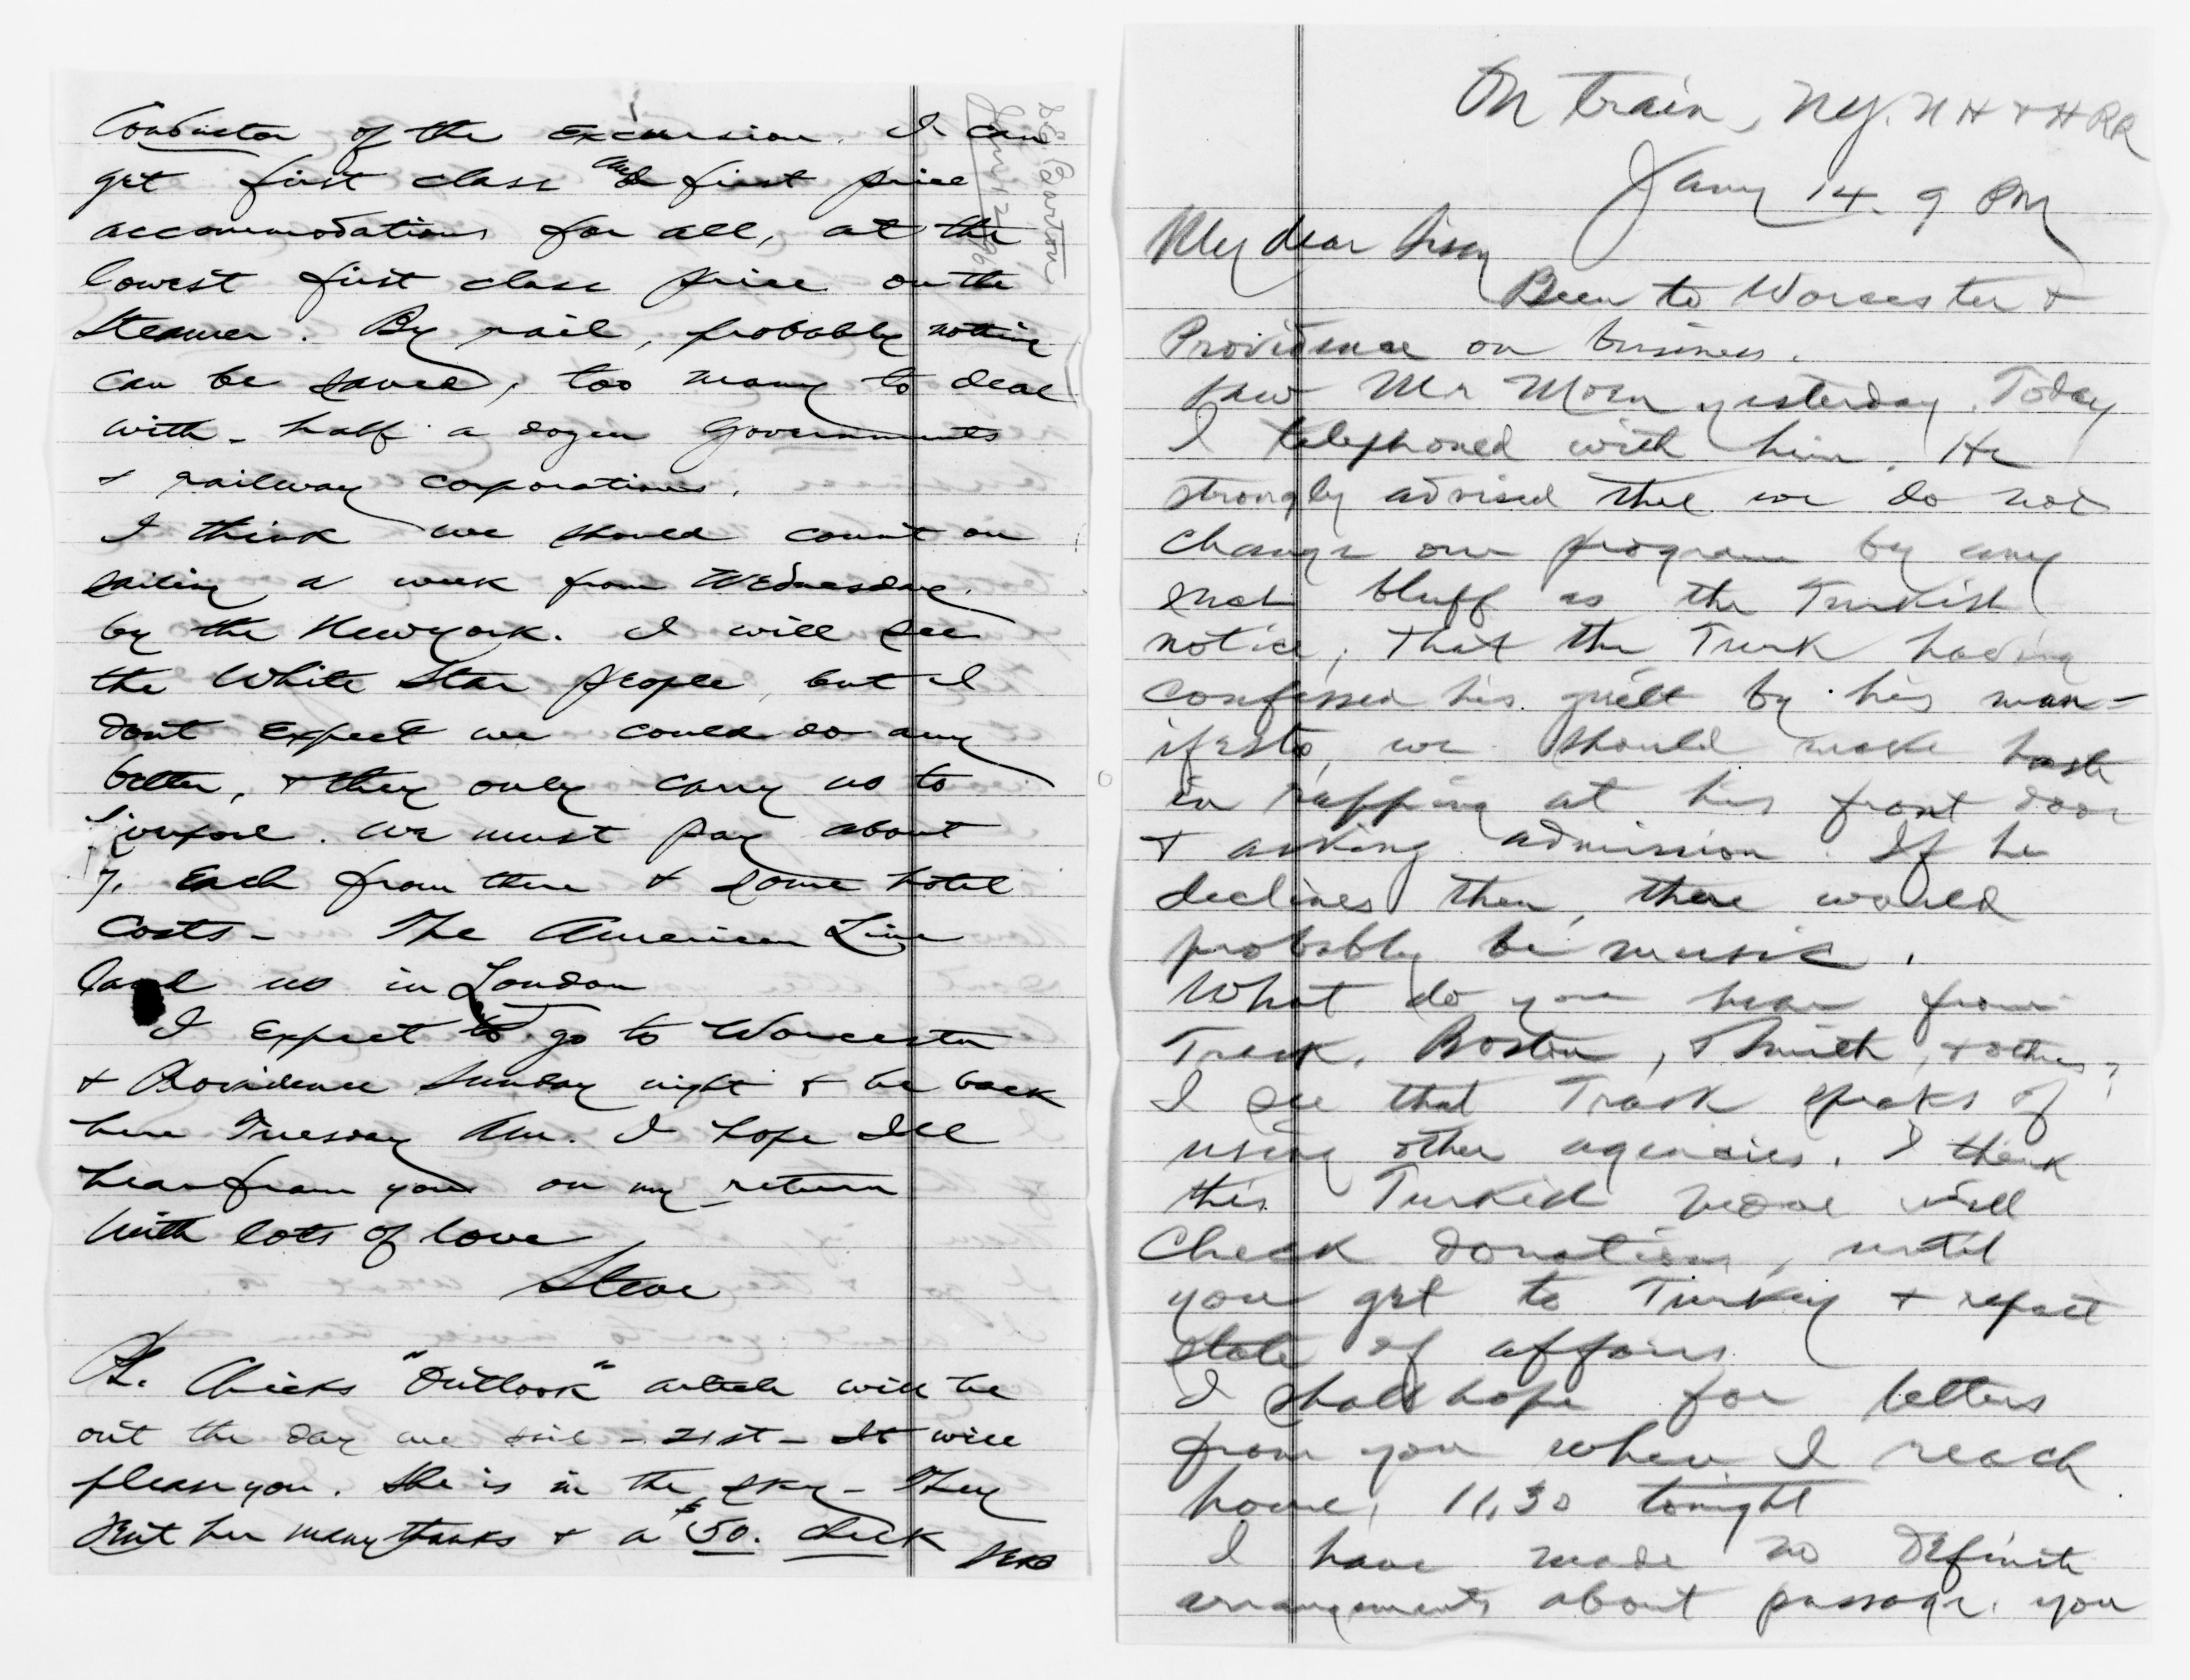 Conductor of the Excursion. I can
get first class and first price
accommodations for all, at the
lowest first class price on the
Steamer. By rail, probably nothing
can be saved, too many to deal
with - half a dozen Governments
& railway corporations.
I think we should count on
sailing a week from Wednesday.
by the Newyork. I will see
the White Star people, but I
dont Expect we could do any
better, & they only carry us to
Liverpool. We must pay about
7. Each from there & some hotel
Costs - The American Line
land us in London
I Expect to go to Worcester
& Providence Sunday night & be back
here Tuesday Am. I hope Ill
hear from you on my return
With lots of love
Steve
P.S. Chicks "Outlook" article will be
out the day we sail - 21st - It will
please you. She is in the sky - They
sent her many thanks & a $50. check
Barton
On train, NY. N H & H RR
Jany 14. 9 PM
My dear Sissy
Been to Worcester &
Providence on business.
Saw Mr Morn yesterday. Today
I telephoned with him. He
strongly advised that we do not
change our program by any
such bluff as the Turkish
notice, That the Turk having
confessed his guilt by his man-
ifesto, we should make haste
in rapping at his front door
& asking admission. If he
declines then, there would
probably be music.
What do you hear from
Trask, Boston, & Smith, & others?
I see that Trask speaks of
using other agencies. I think
this Turkish move will
Check donations, until
you get to Turkey & report
state of affairs.
I shall hope for letters
from you when I reach
home, 11,30 tonight
I have made no Definite
arrangements about passage. you